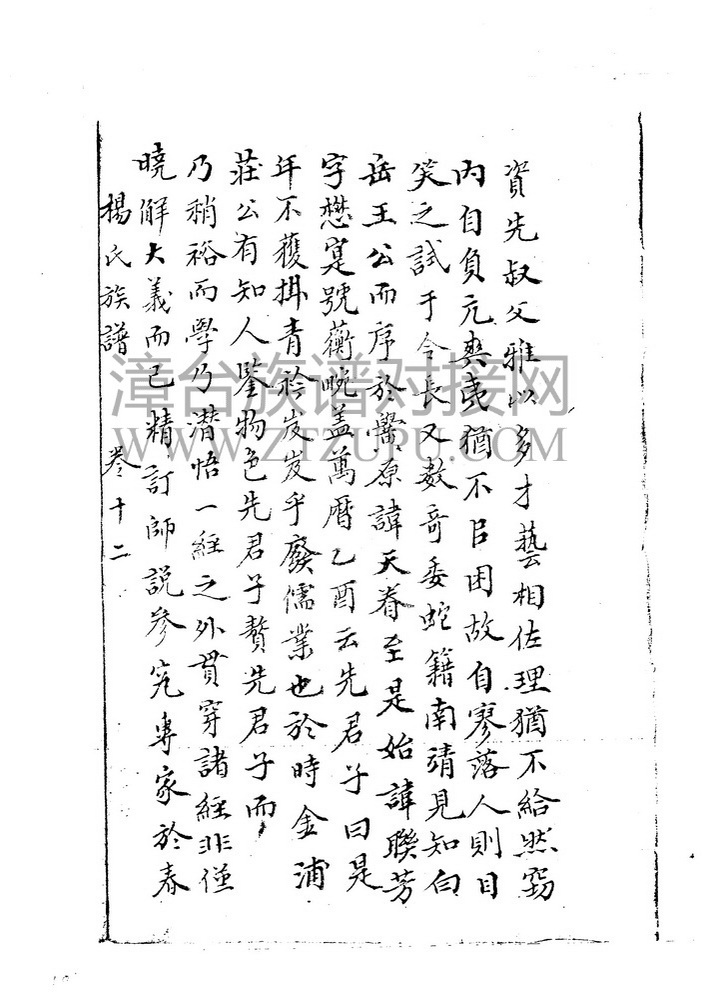 資先叔父雅以多才藝相佐理猶不給然窮
內自負元爽夷猶不臣困故自寥落人則目
笑之試于令長又數奇委蛇籍南靖見知向
岳王公而序於黌原諱天眷至是始諱聯芳
字懋寔號蘅畹盖萬曆乙酉云先君子曰是
年不獲掛青衿岌岌乎廢儒業也於時金浦
莊公有知人鑒物色先君子贅先君子而
乃稍裕而學乃潜悟一經之外貫穿諸經非僅
曉解大義而已精訂師說參究專家於春
楊氏族譜 卷十二
漳台族谱对接网
WWW.ZTZUPU.COM